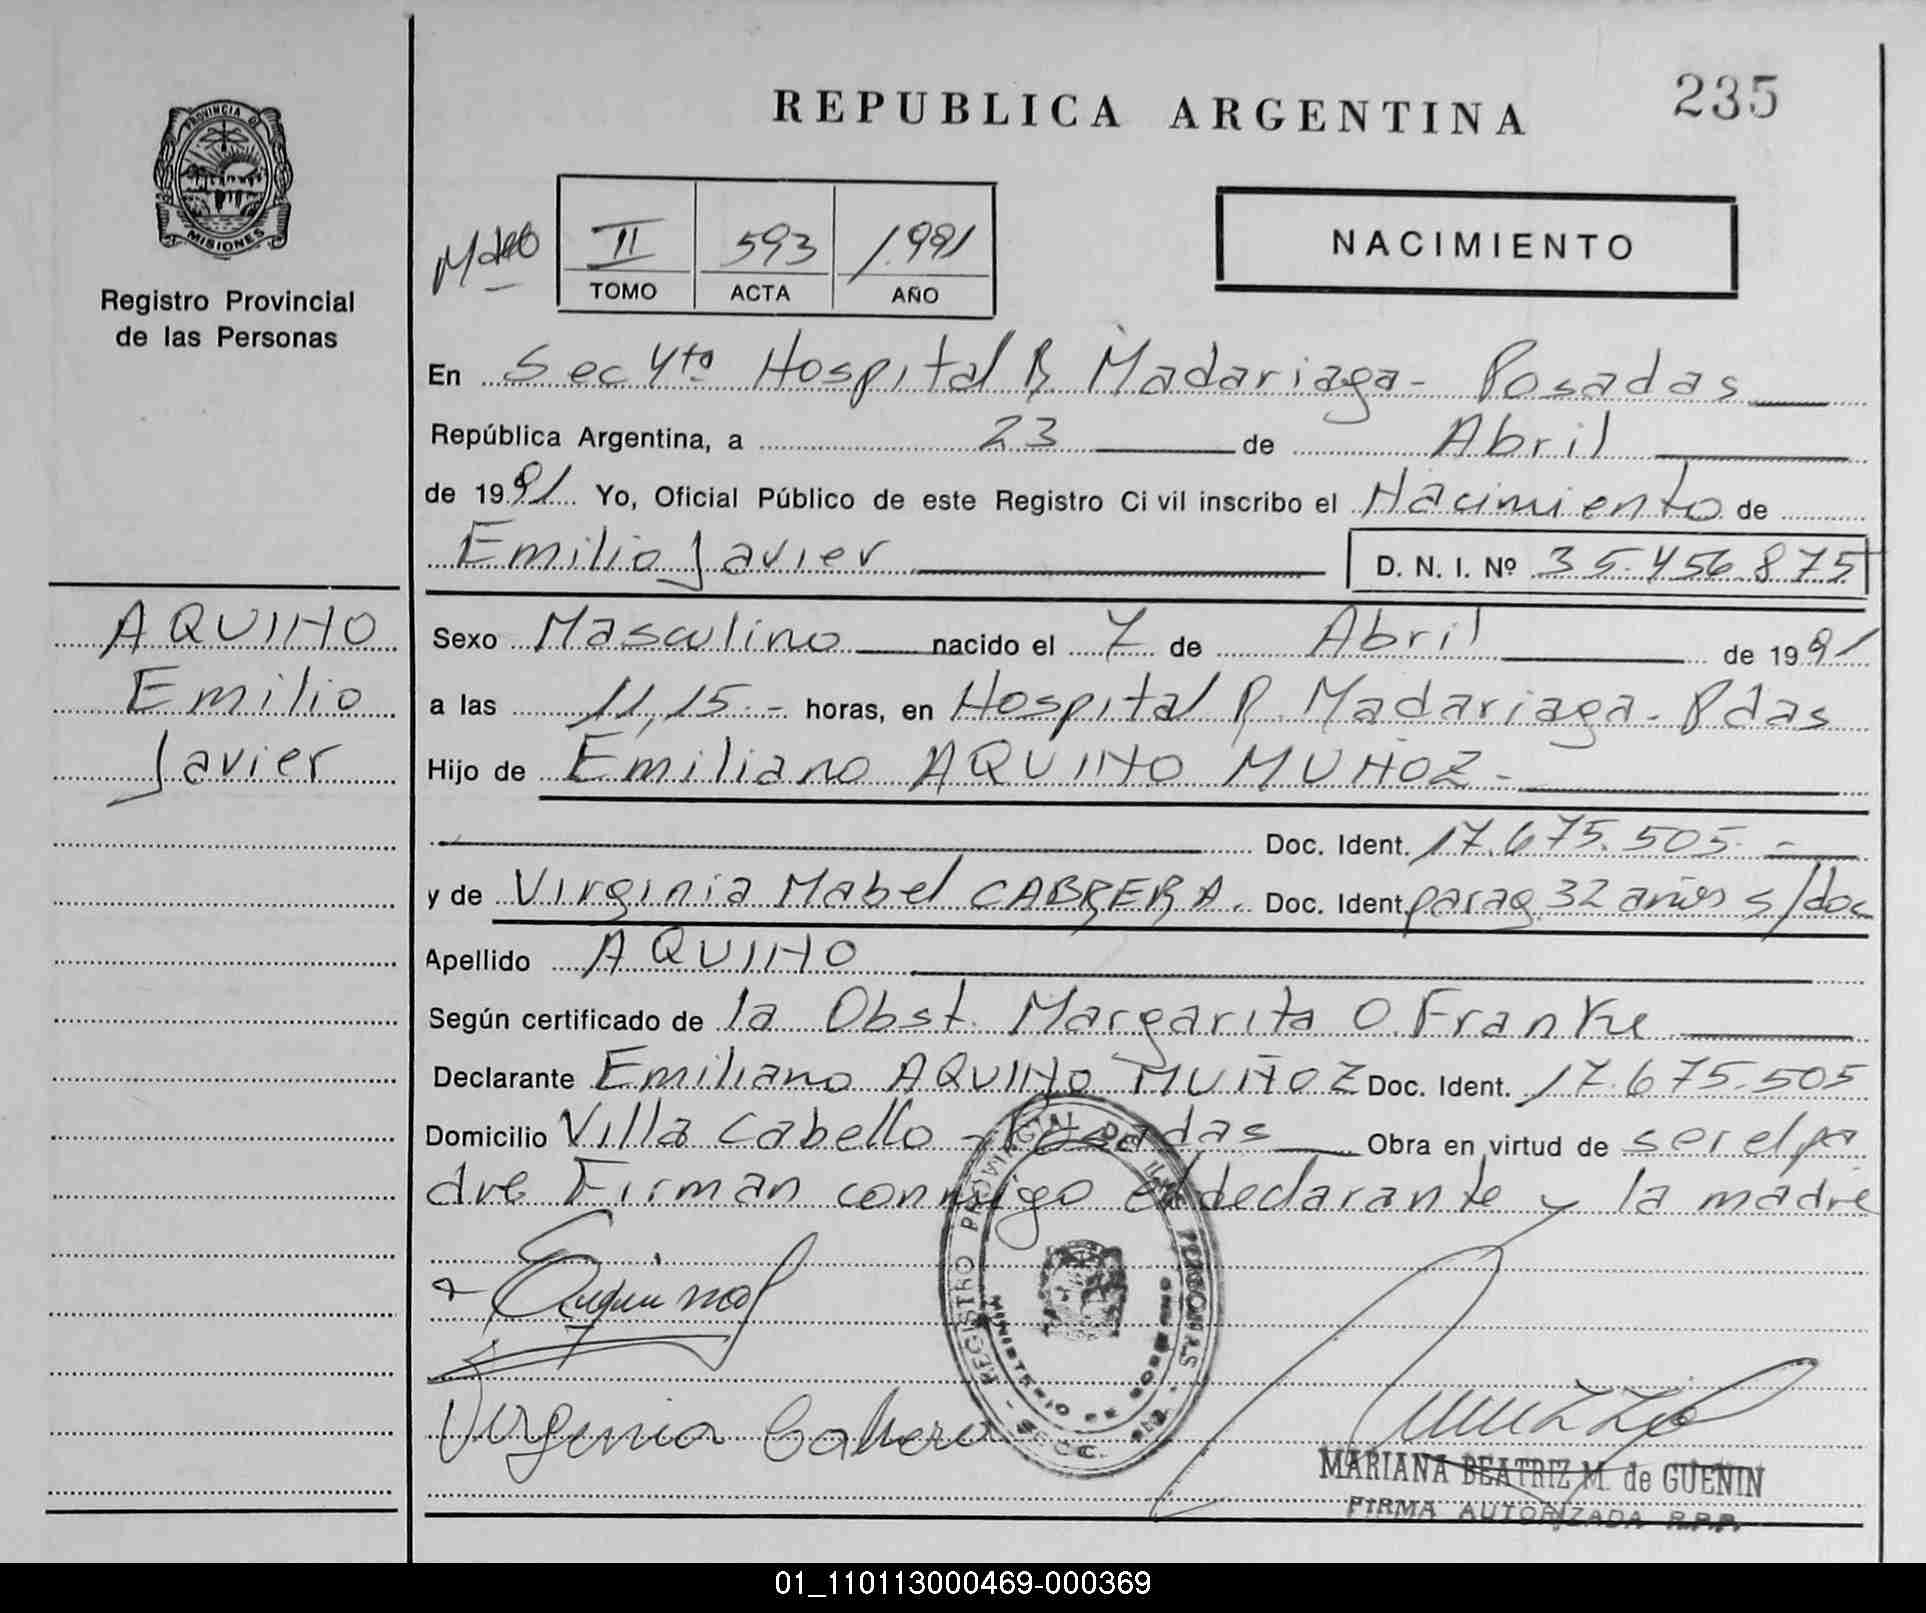 REPUBLICA ARGENTINA
235
PROVINCIA DE
MISIONES
Registro Provincial
de las Personas
II 593 1.991
TOMO ACTA AÑO
NACIMIENTO
En Sec 4ta Hospital R Madariaga - Posadas
República Argentina, a 23 de Abril
de 1991 Yo, Oficial Público de este Registro Civil inscribo el Nacimiento de
Emilio Javier D. N. I. Nº 35.456.875
AQUINO
Emilio
Javier
Sexo Masculino nacido el 7 de Abril de 1991
a las 11,15.- horas, en Hospital R. Madariaga - Pdas
Hijo de Emiliano AQUINO MUÑOZ -
Doc. Ident. 17.675.505.-
y de Virginia Mabel CABRERA. Doc. Ident. parag 32 años s/doc
Apellido AQUINO
Según certificado de la Obst. Margarita O. Franke
Declarante Emiliano AQUINO MUÑOZ Doc. Ident. 17.675.505
Domicilio Villa Cabello - Posadas Obra en virtud de ser el pa
dre Firman conmigo el declarante y la madre
REGISTRO PROVINCIAL DE LAS PERSONAS
MINISTERIO DE GOBIERNO
SECC. 4ta
Virginia Cabrera
MARIANA BEATRIZ M. de GUENIN
FIRMA AUTORIZADA R.P.P.
01_110113000469-000369